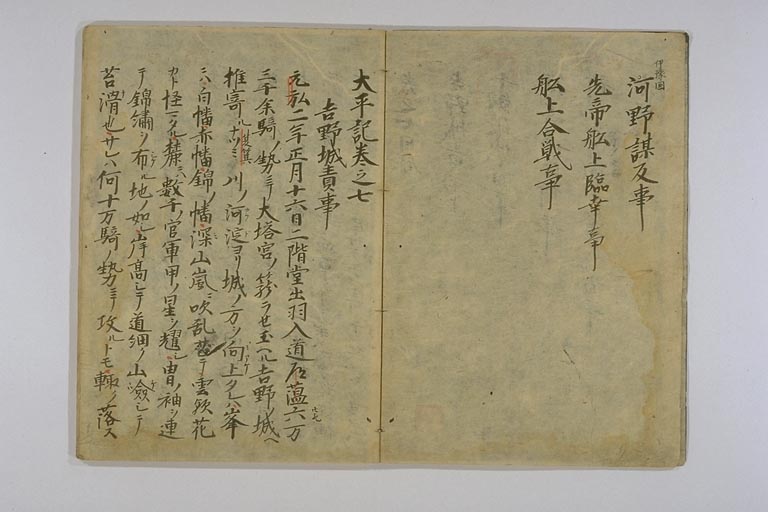 伊豫国
河野謀反事
先帝船上臨幸事
船上合戦事
太平記巻之七
吉野城責事
元弘二年正月十六日二階堂出羽入道道蘊六万
三千余騎ノ勢ニテ大塔宮ノ籠ラせ玉ヘル吉野ノ城ヘ
推寄ル
川ノ河淀ヨリ城ノ方ヲ向上タレハ峯
ニハ白幡赤幡錦ノ幡深山嵐ニ吹乱サレテ雲歟花
カト怪マル麓ニハ数千ノ官軍甲ノ星ヲ耀シ冑ノ袖ヲ連
テ錦繍ヲ布ル地ノ如シ岸高シテ道細ク山嶮シテ
苔滑也サレハ何十万騎ノ勢ニテ攻ルトモ輙ク落ス